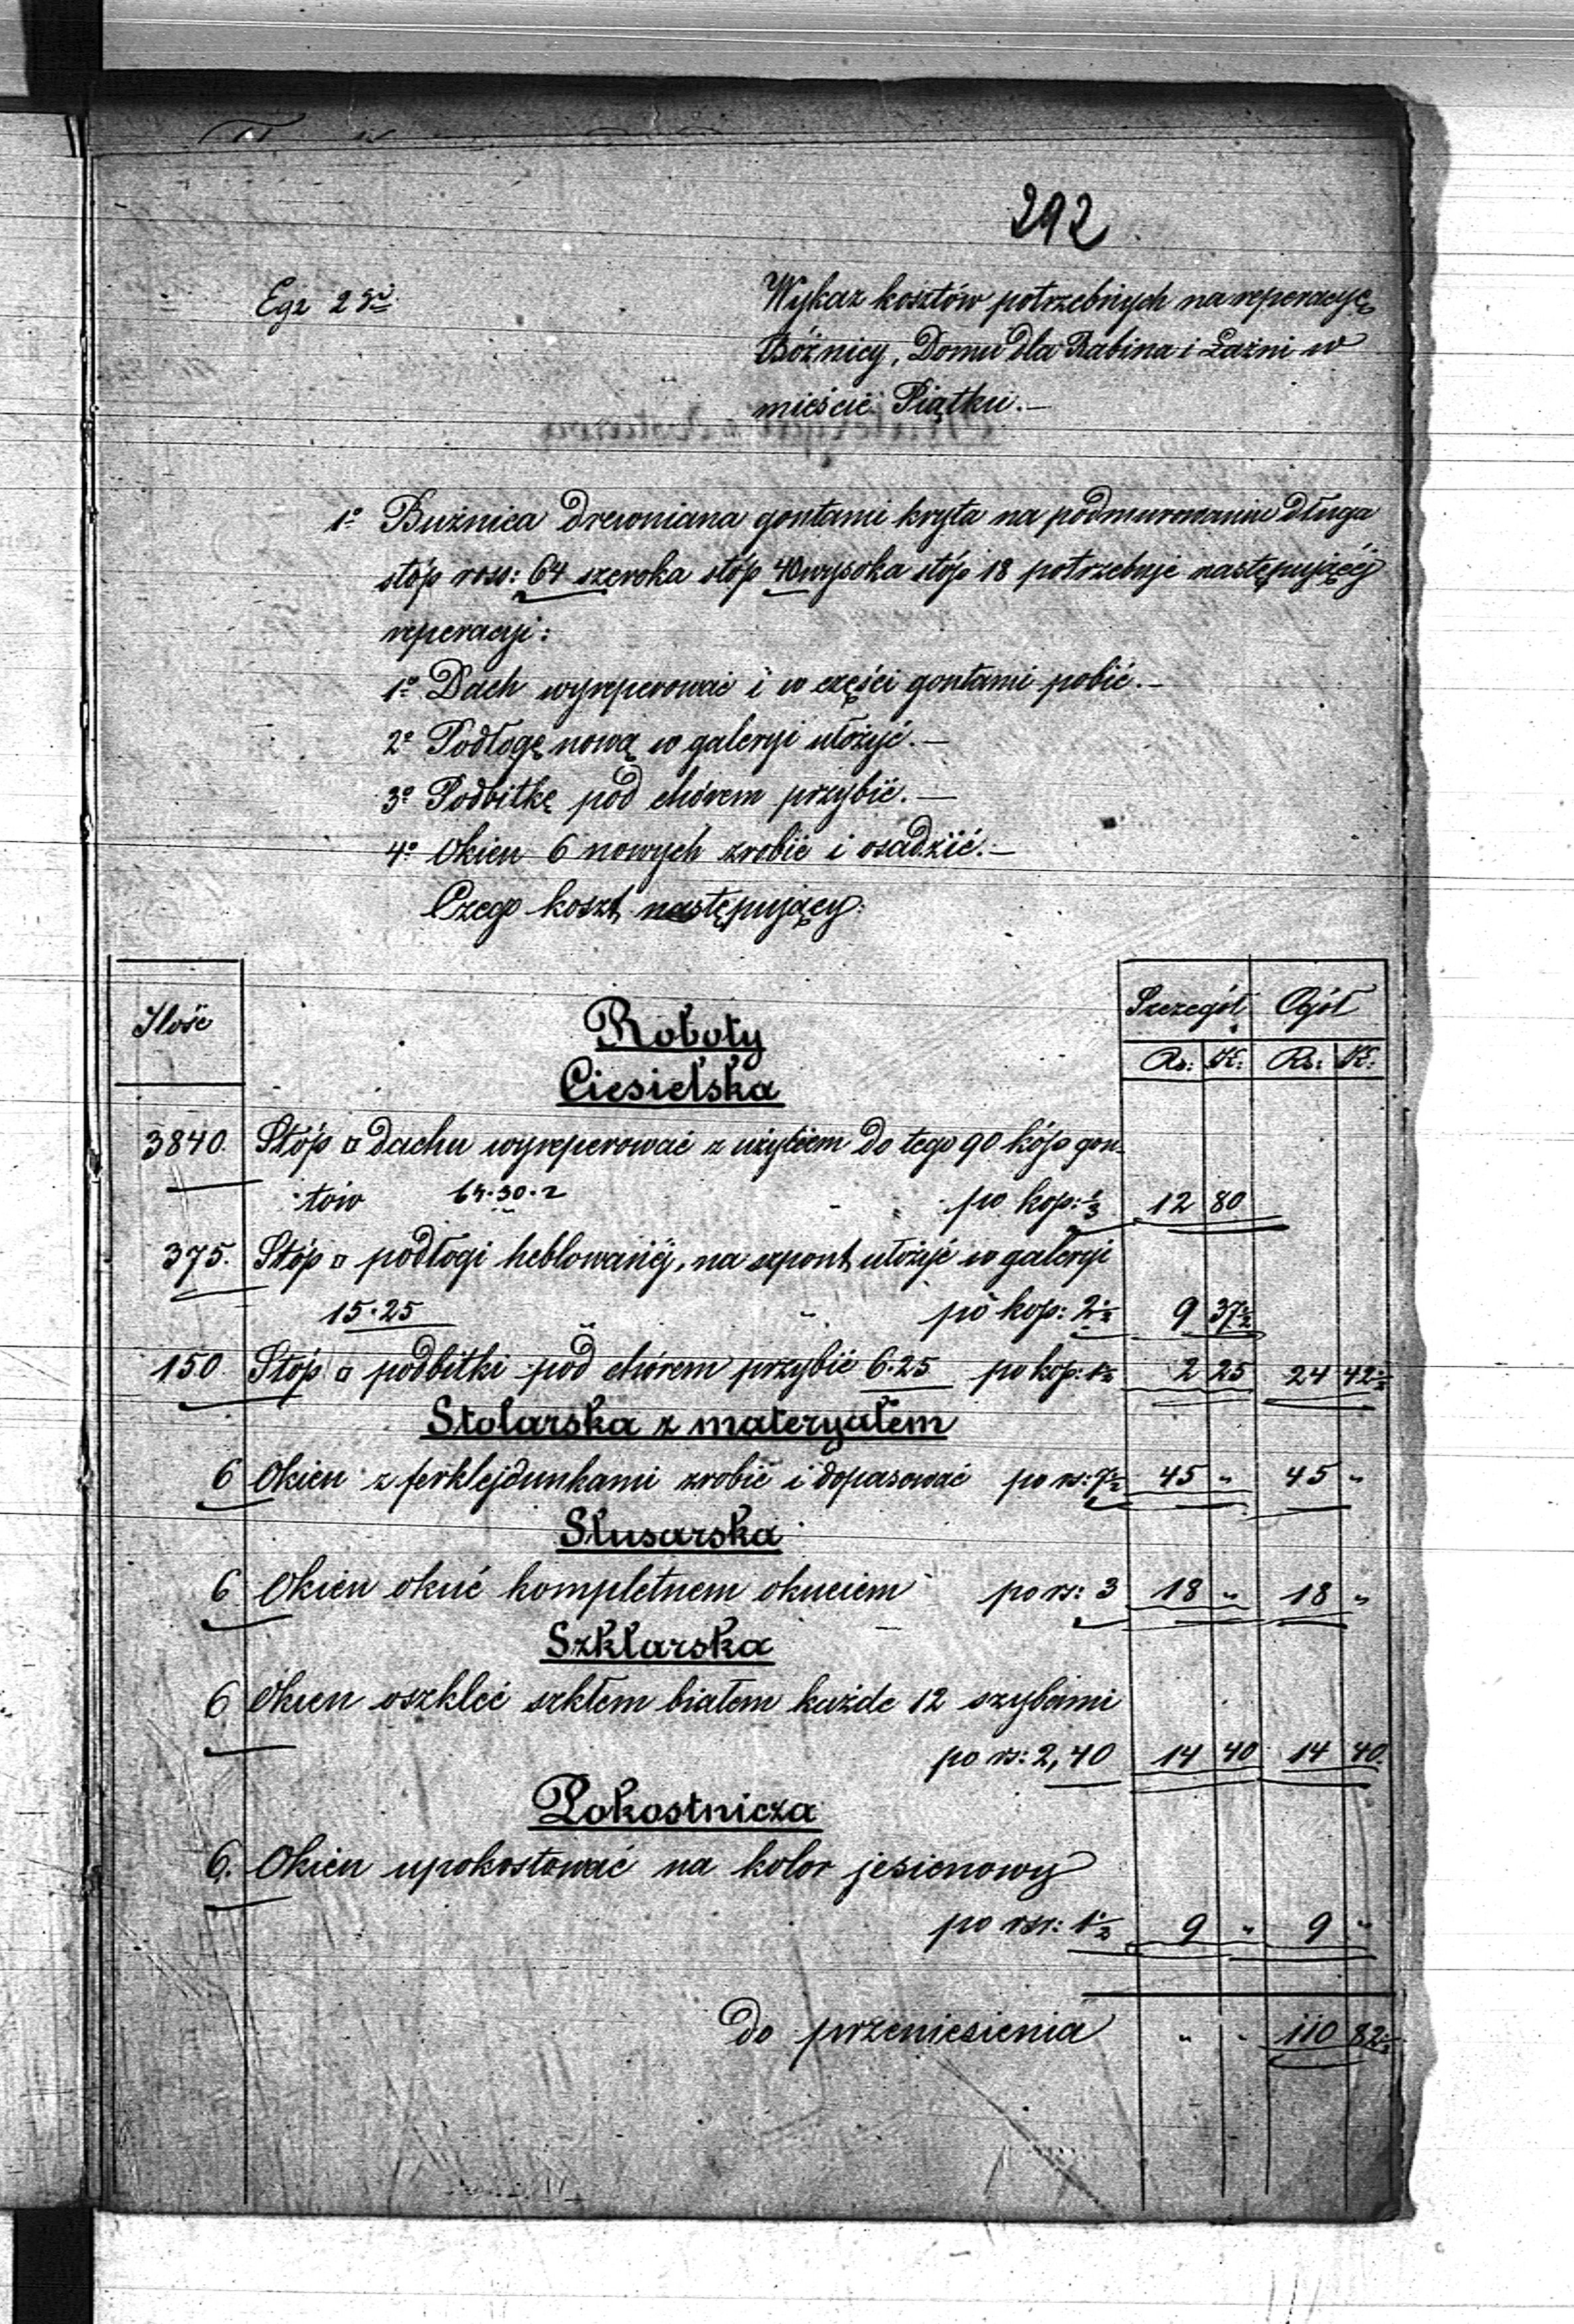 292
Egz 2gi
Wykaz kosztów potrzebnych na reperacyę
Bóżnicy, Domu dla Rabina i Łaźni w
mieście Piątku.—
1o Bużnica drewniana gontami kryta na podmurowaniu długa
stóp ross: 64 szeroka stóp 40 wysoka stóp 18 potrzebuje następującéj
reperacyi:
1o Dach wyreperować i w części gontami pobić.—
2o Podłogę nową w galeryi ułożyć.—
3o Podbitkę pod chórem przybić.—
4o Okien 6 nowych zrobić i osadzić.—
Czego koszt następujący:
Ilość Szczegół Ogół
Rs: K: Rs: K:
Roboty
Ciesielska
3840. Stóp □ dachu wyreperować z użyciem do tego 90 kóp gon-
tów 64.30.2 po kop: 1/3 12 80
375. Stóp □ podłogi heblowanéj, na szpont ułożyć w galeryi
15.25 po kop: 2 1/2 9 37 1/2
150 Stóp □ podbitki pod chórem przybić 6.25 po kop: 1 1/2 2 25 24 42 1/2
Stolarska z materyałem
6 Okien z ferklejdunkami zrobić i dopasować po rs: 7 1/2 45 " 45 "
Slusarska
6 Okien okuć kompletnem okuciem po rs: 3 18 " 18 "
Szklarska
6 Okien oszkleć szkłem białem każde 12 szybami
po rs: 2,40 14 40 14 40.
Pokostnicza
6. Okien upokostować na kolor jesionowy
po rsr: 1 1/2 9 " 9 "
do przeniesienia " " 110 82 1/2